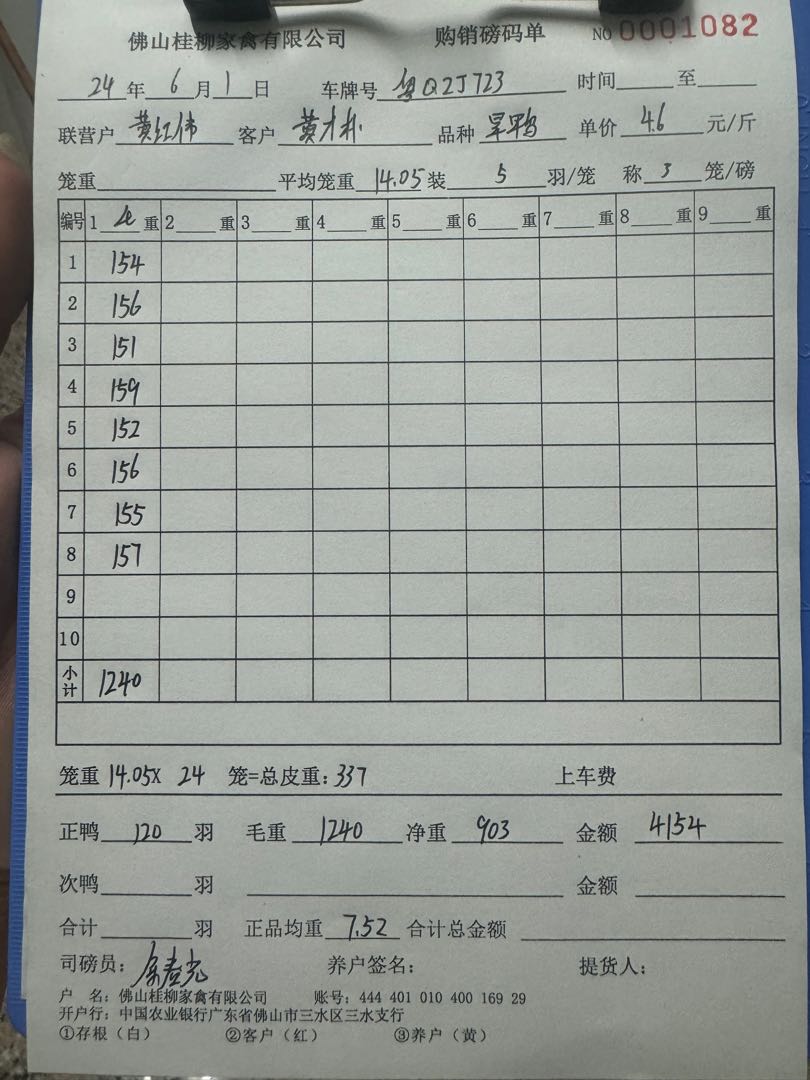 佛山桂柳家禽有限公司 购销磅码单 NO 0001082
24 年 6 月 1 日 车牌号 粤Q2J723 时间 至
联营户 黄红伟 客户 黄才 品种 旱鸭 单价 4.6 元/斤
笼重 平均笼重 14.05 装 5 羽/笼 称 3 笼/磅
编号 1 重 2 重 3 重 4 重 5 重 6 重 7 重 8 重 9 重
1 154
2 156
3 151
4 159
5 152
6 156
7 155
8 157
9
10
小计 1240
笼重 14.05X 24 笼=总皮重: 337 上车费
正鸭 120 羽 毛重 1240 净重 903 金额 4154
次鸭 羽 金额
合计 羽 正品均重 7.52 合计总金额
司磅员: 养户签名: 提货人:
户 名: 佛山桂柳家禽有限公司 账号: 444 401 010 400 169 29
开户行: 中国农业银行广东省佛山市三水区三水支行
①存根（白） ②客户（红） ③养户（黄）